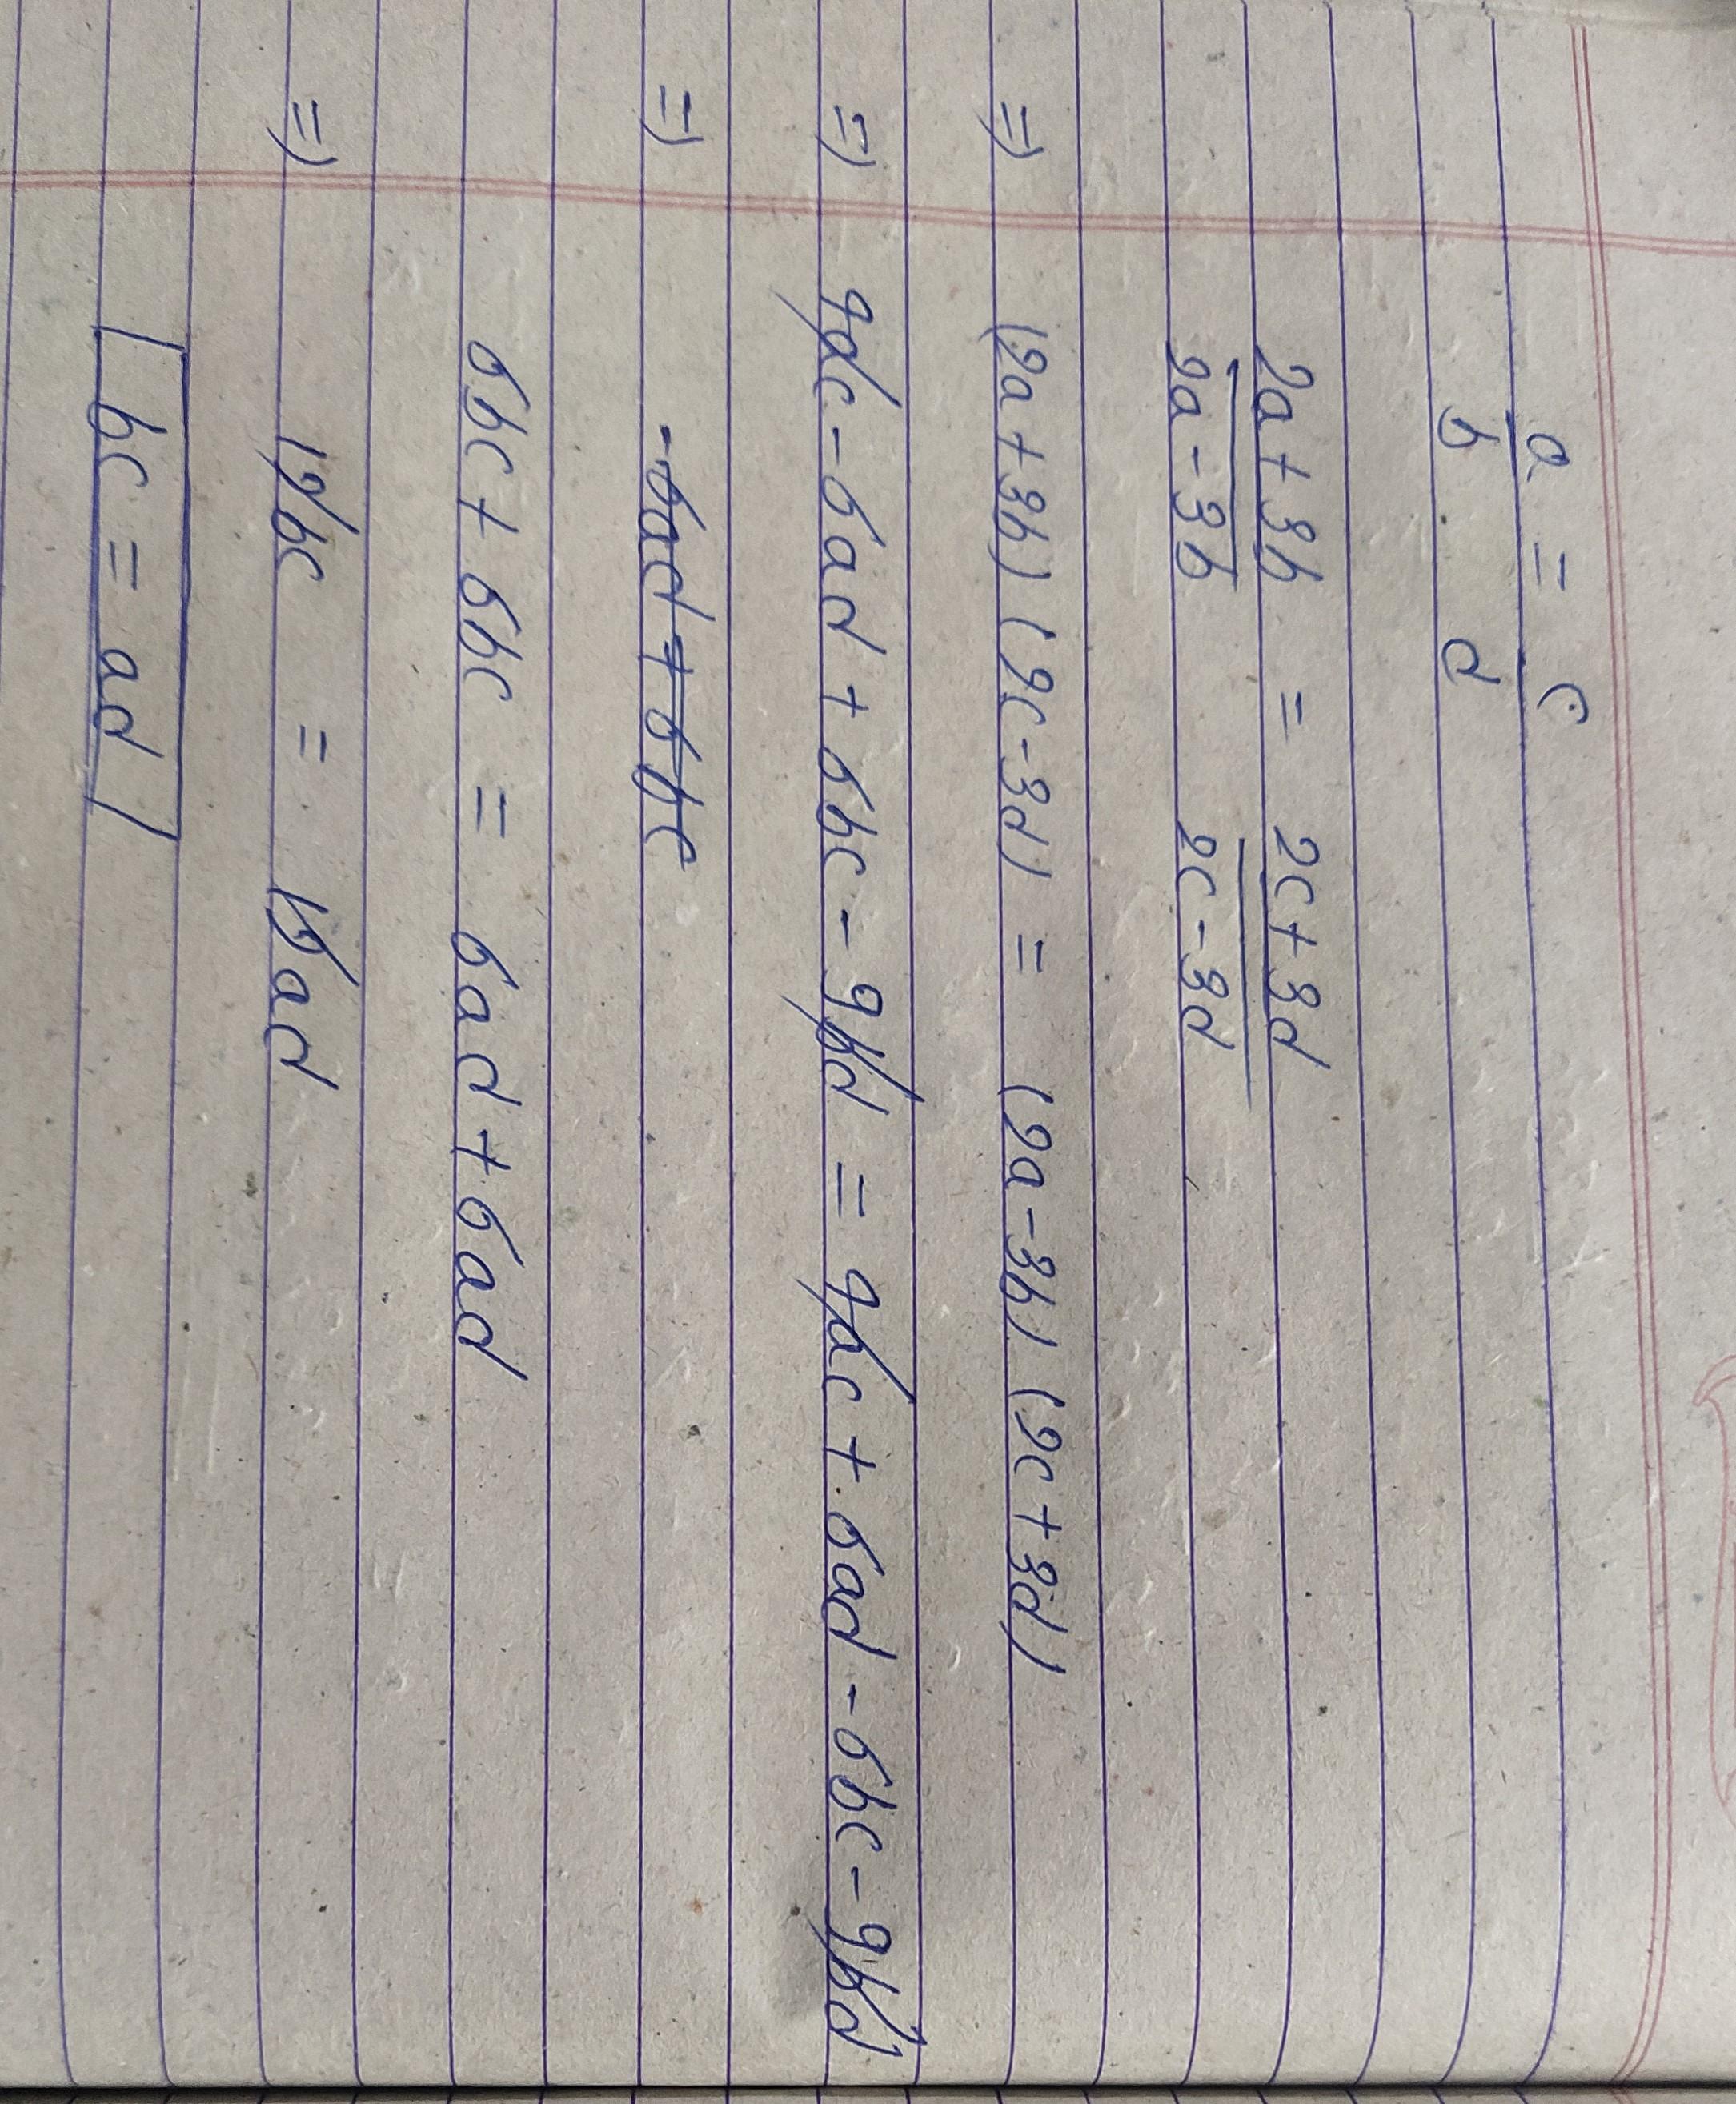 a = c
b   d
2a + 3b = 2c + 3d
2a - 3b   2c - 3d
=) (2a + 3b) (2c - 3d) = (2a - 3b) (2c + 3d)
=) 4ac - 6ad + 6bc - 9bd = 4ac + 6ad - 6bc - 9bd
=) -6ad + 6bc
6bc + 6bc = 6ad + 6ad
=) 12bc = 12ad
bc = ad